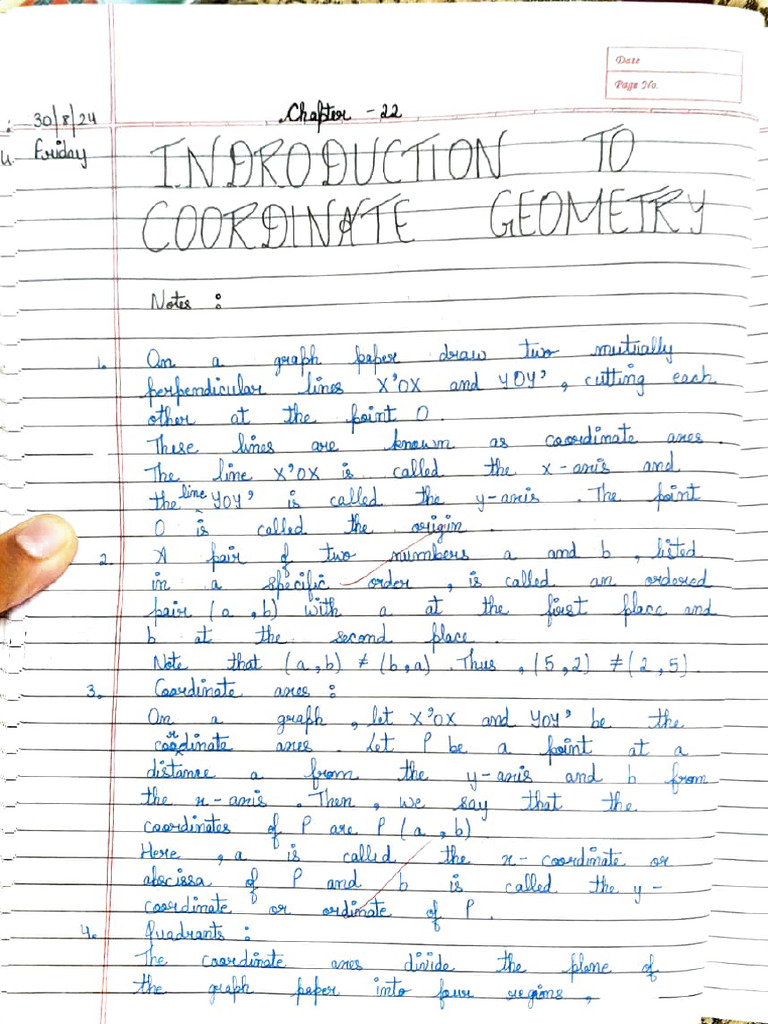 Date
Page No.
Chapter - 22
30/8/24
Friday
INDRODUCTION TO
COORDINATE GEOMETRY
Notes :
1. On a graph paper draw two mutually
perpendicular lines X'OX and YOY', cutting each
other at the point O.
These lines are known as coordinate axes.
The line X'OX is called the x-axis and
the line YOY' is called the y-axis. The point
O is called the origin.
2. A pair of two numbers a and b, listed
in a specific order, is called an ordered
pair (a, b) with a at the first place and
b at the second place.
Note that (a, b) ≠ (b, a). Thus, (5, 2) ≠ (2, 5).
3. Coordinate axes :
On a graph, let X'OX and YOY' be the
coordinate axes. Let P be a point at a
distance a from the y-axis and b from
the x-axis. Then, we say that the
coordinates of P are P (a, b)
Here, a is called the x-coordinate or
abscissa of P and b is called the y-
coordinate or ordinate of P.
4. Quadrants :
The coordinate axes divide the plane of
the graph paper into four regions,